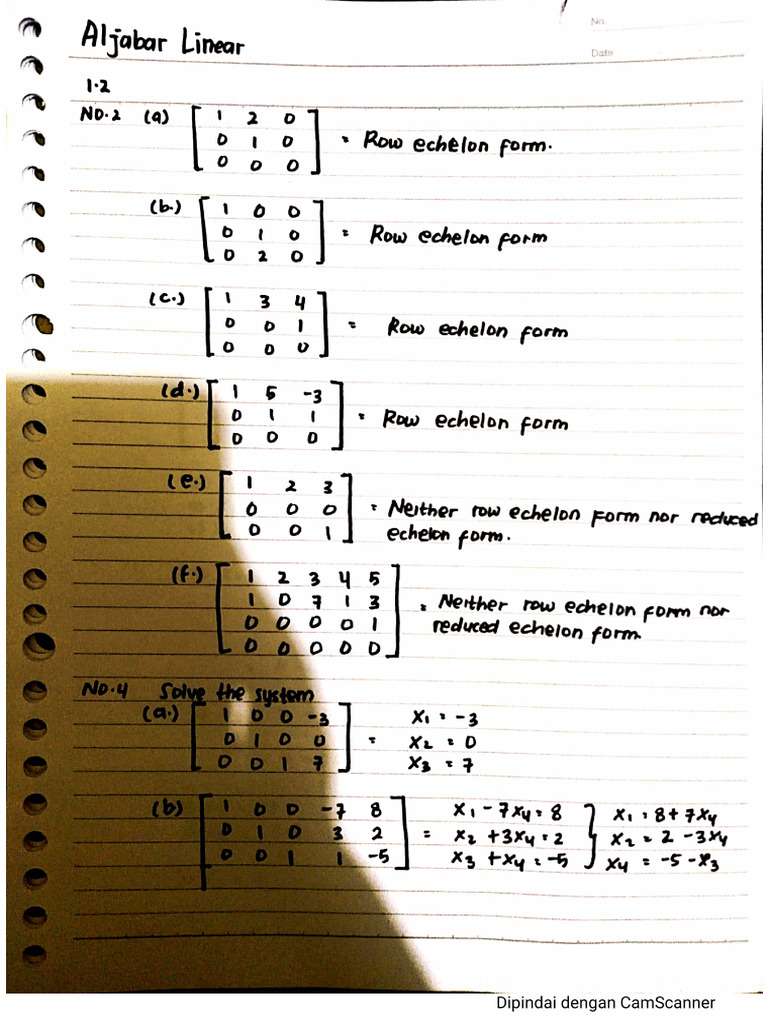 No.
Aljabar Linear
Date
1.2
NO.2 (a) [ 1 2 0
0 1 0
0 0 0 ] = Row echelon form.
(b.) [ 1 0 0
0 1 0
0 2 0 ] = Row echelon form
(c.) [ 1 3 4
0 0 1
0 0 0 ] = Row echelon form
(d.) [ 1 5 -3
0 1 1
0 0 0 ] = Row echelon form
(e.) [ 1 2 3
0 0 0
0 0 1 ] = Neither row echelon form nor reduced
echelon form.
(f.) [ 1 2 3 4 5
1 0 7 1 3
0 0 0 0 1
0 0 0 0 0 ] = Neither row echelon form nor
reduced echelon form.
NO.4 Solve the system
(a.) [ 1 0 0 -3
0 1 0 0
0 0 1 7 ] = x₁ = -3
x₂ = 0
x₃ = 7
(b) [ 1 0 0 -7 8
0 1 0 3 2
0 0 1 1 -5 ] = x₁ - 7x₄ = 8 } x₁ = 8 + 7x₄
x₂ + 3x₄ = 2 x₂ = 2 - 3x₄
x₃ + x₄ = -5 x₄ = -5 - x₃
Dipindai dengan CamScanner